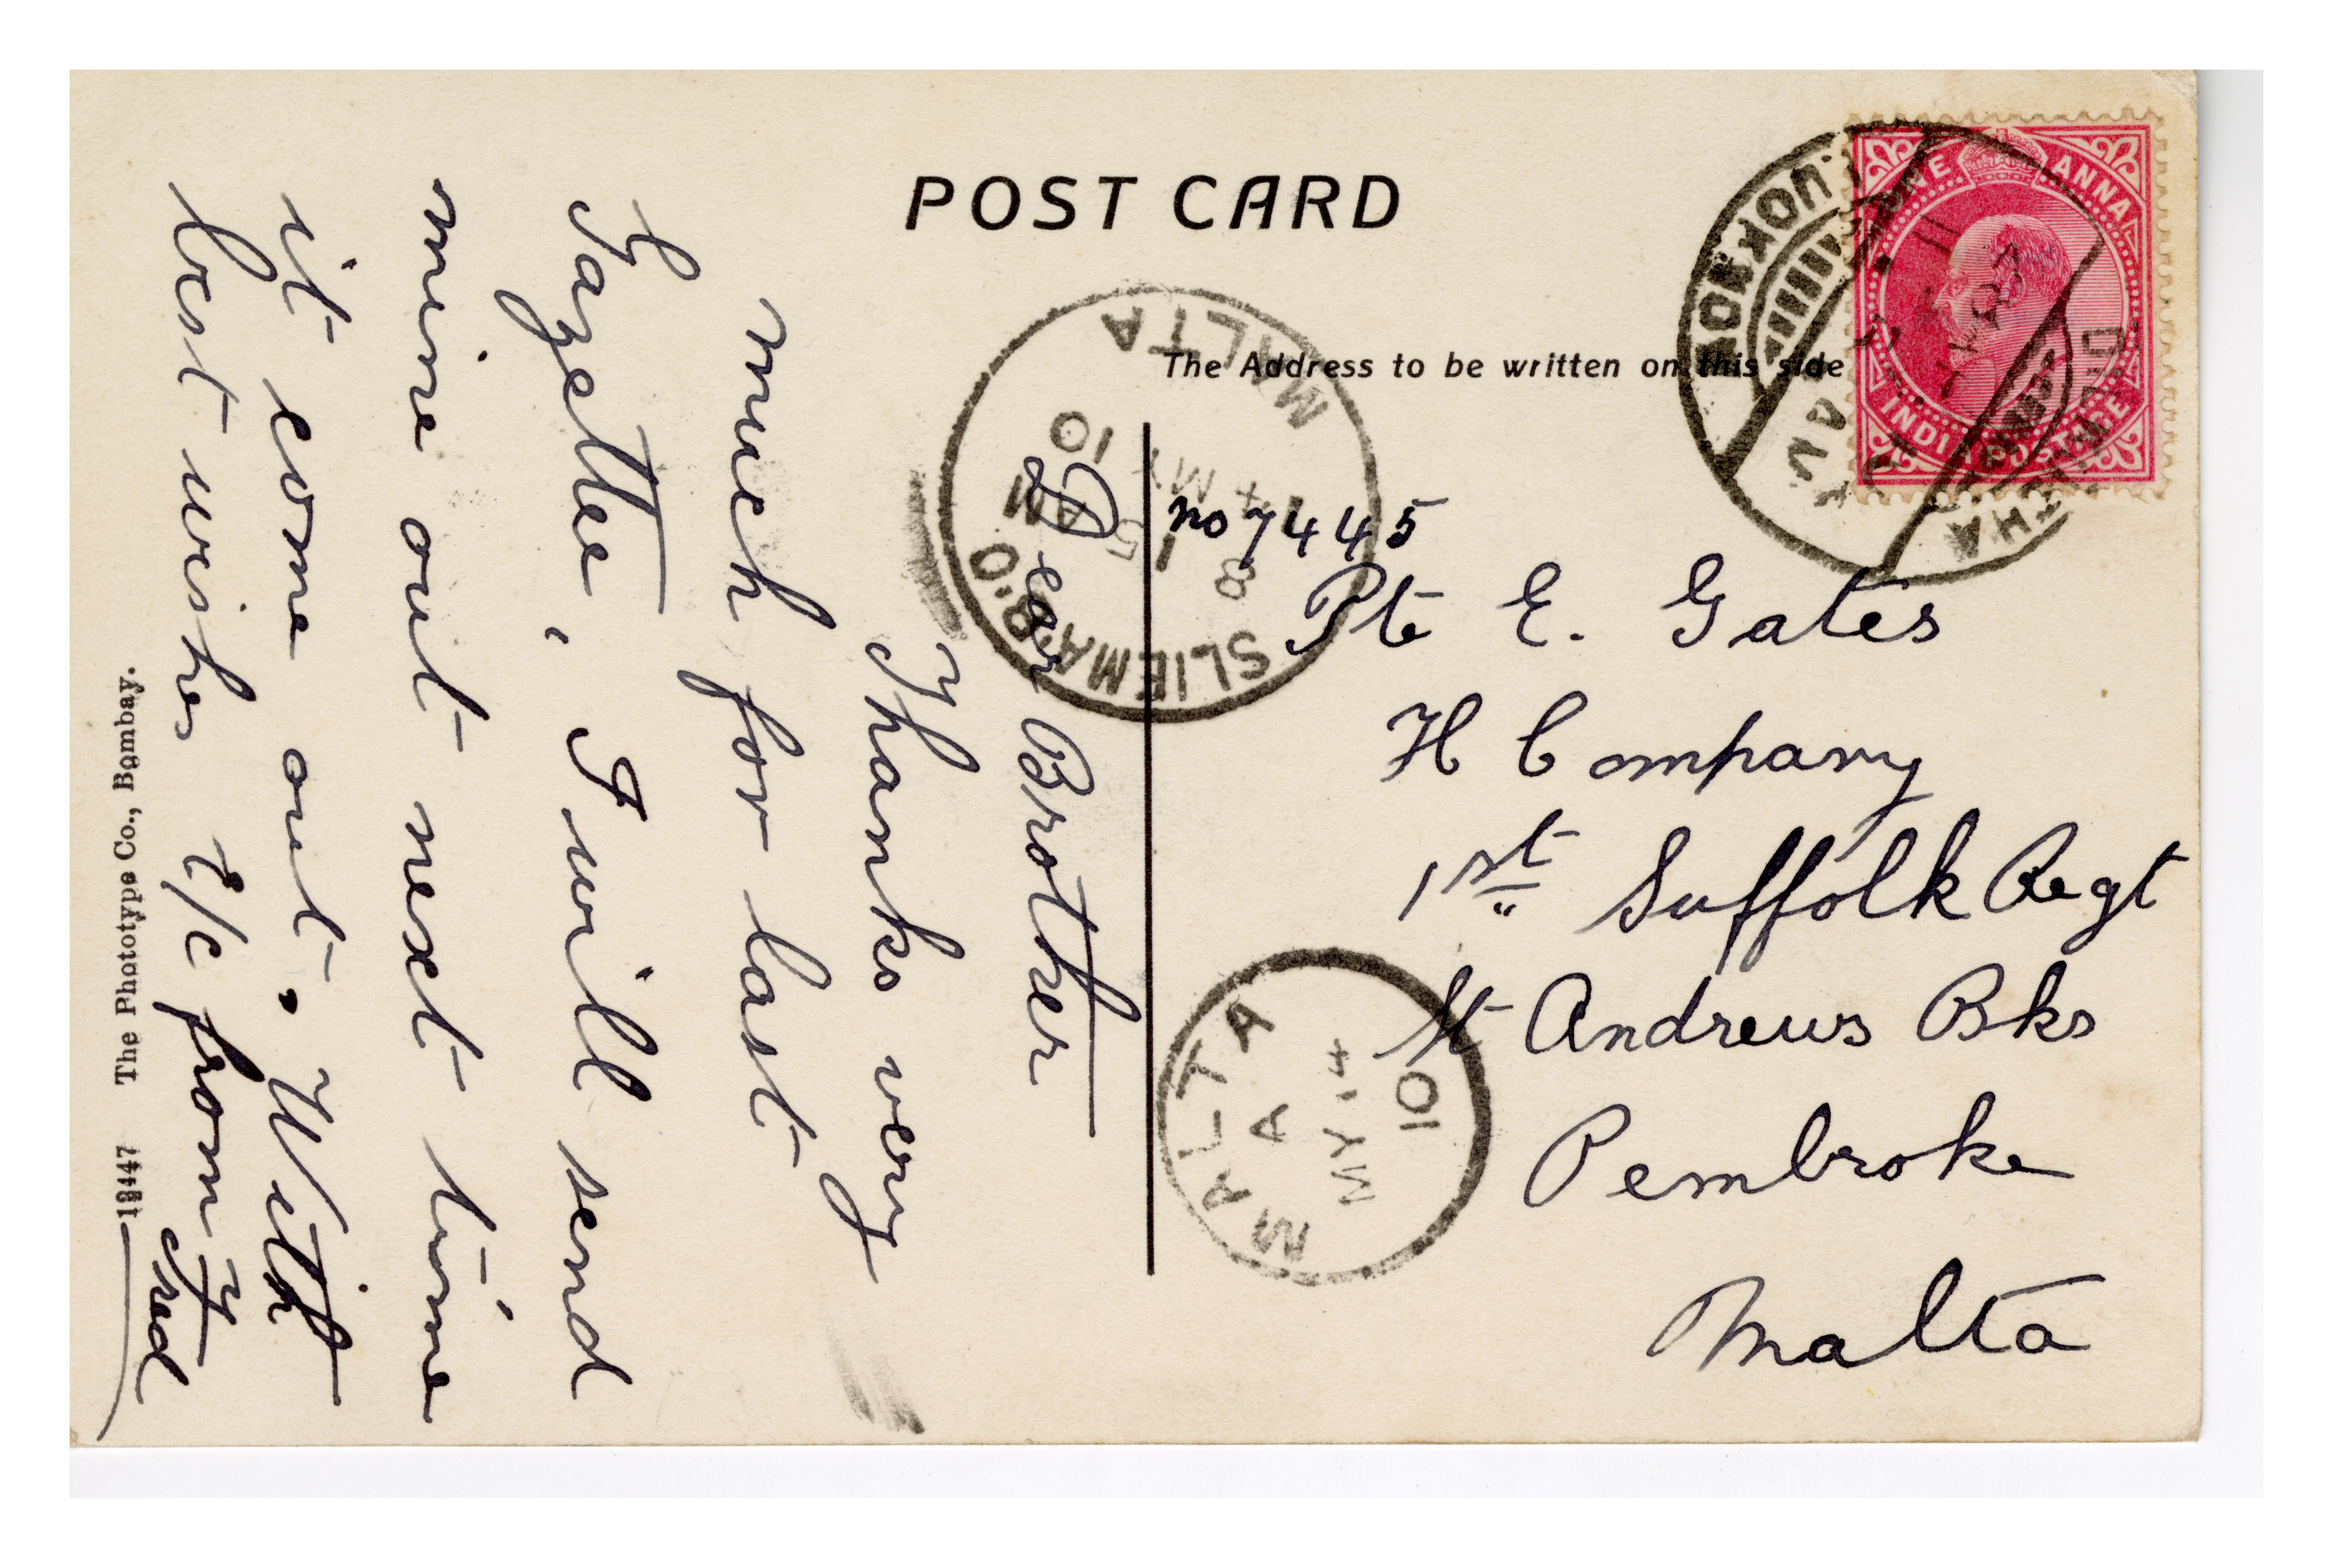 POST CARD
The Address to be written on this side
ONE ANNA
INDIA POSTAGE
MALTA
SLIEMA B.O
MY
10
no 7445
Pte E. Gates
H Company
1st Suffolk Regt
St Andrews Bks
Pembroke
Malta
MALTA
A
MY 14
10
Dear Brother
Thanks very
much for last
Gazette, I will send
mine out next time
it come out. With
best wishes &/c from
Fred
The Phototype Co., Bombay.